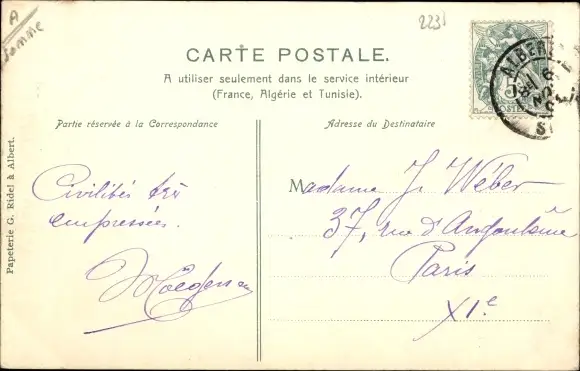 A
Somme
2231
CARTE POSTALE.
A utiliser seulement dans le service intérieur
(France, Algérie et Tunisie).
Partie réservée à la Correspondance
Adresse du Destinataire
Papeterie G. Ridel à Albert.
Civilités très
empressées.
Madame J. Wéber
37, rue d'Angoulême
Paris
XIe
ALBERT
5